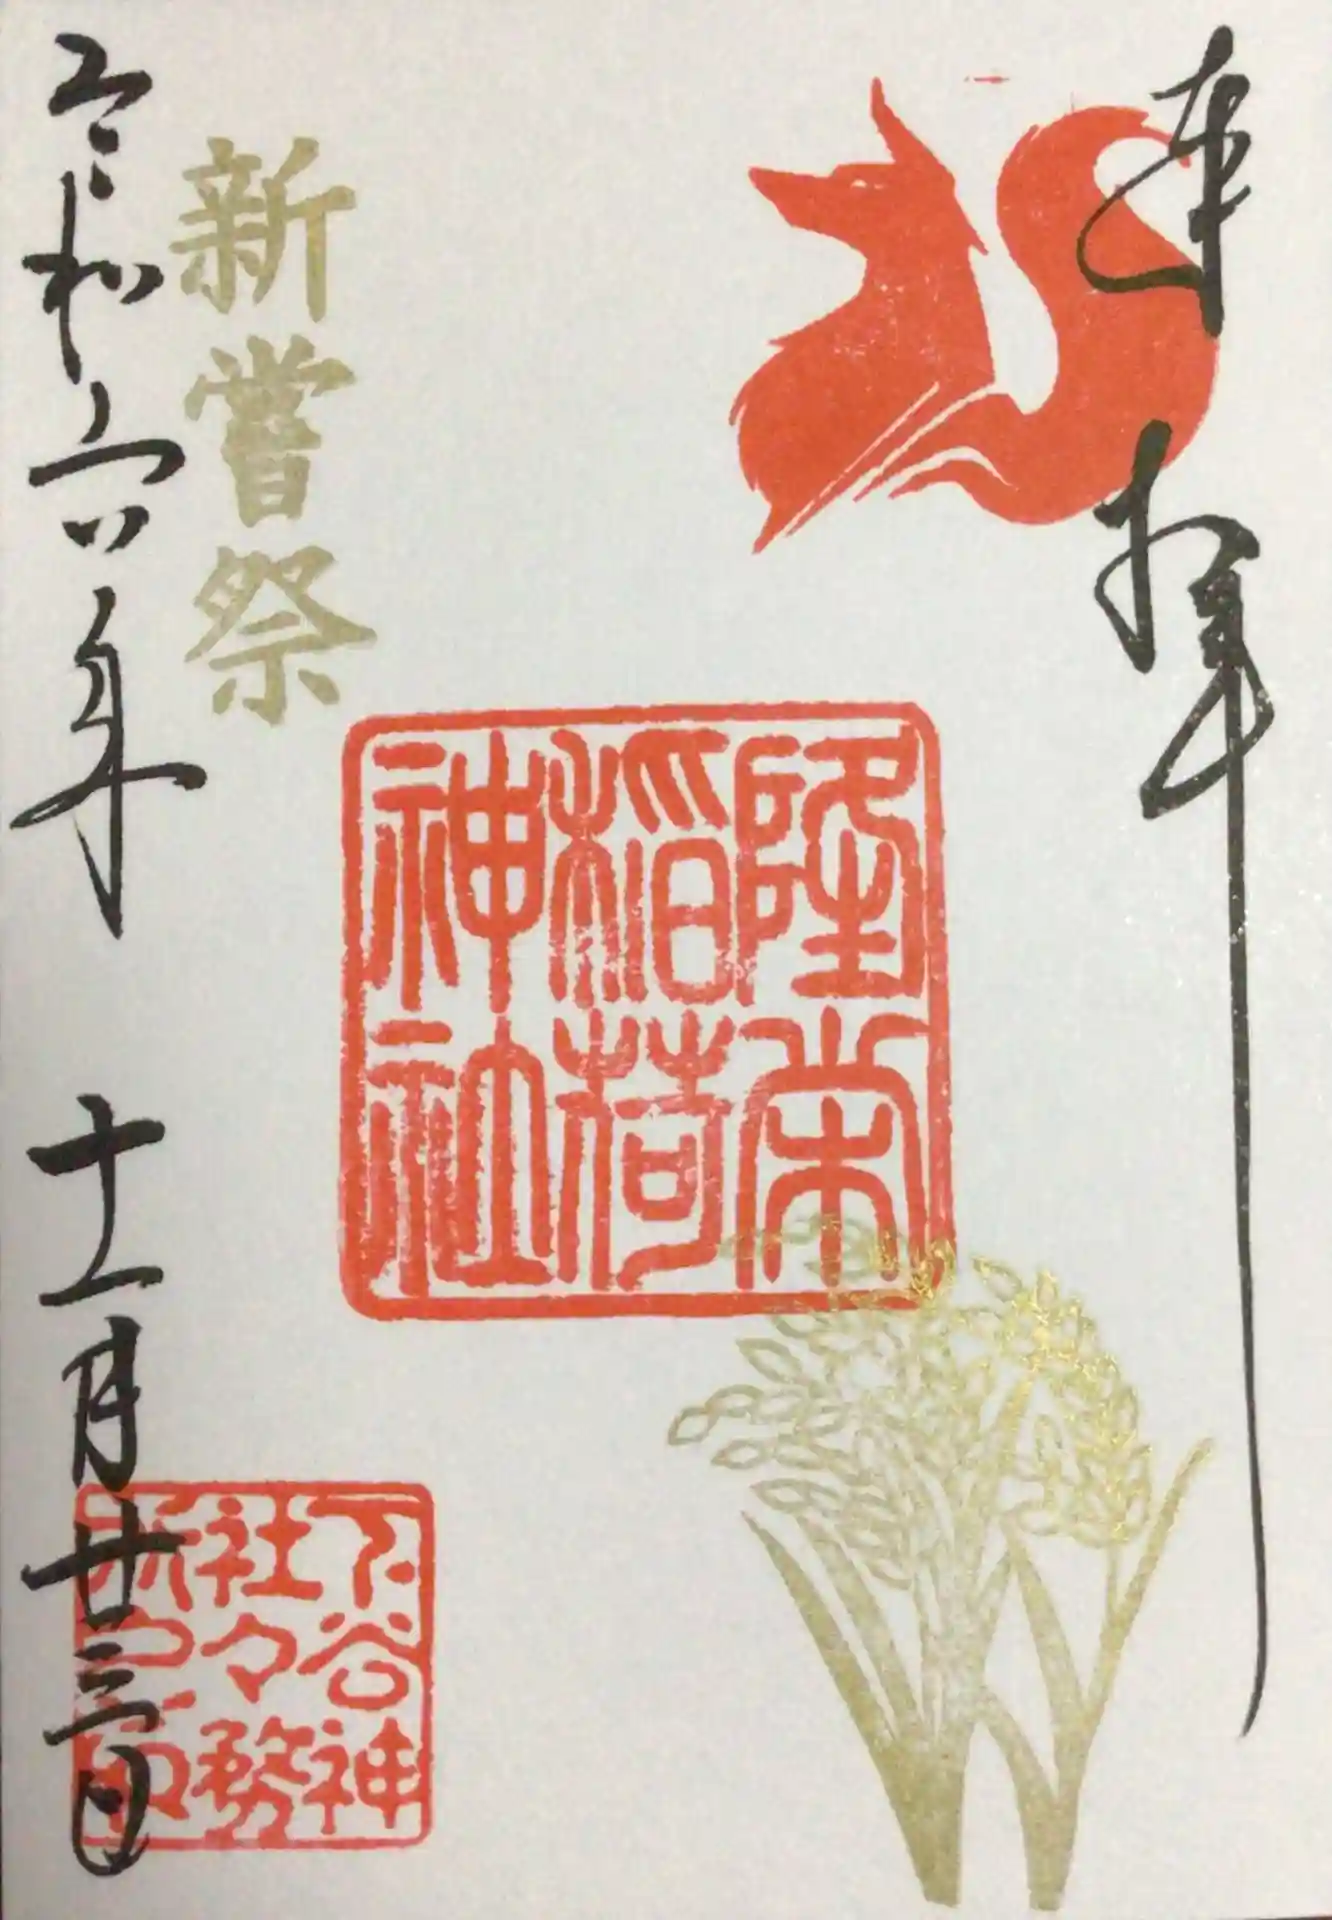 奉拝
隆栄
稲荷
神社
新嘗祭
令和六年 十一月廿三日
下谷神
社々務
所之印